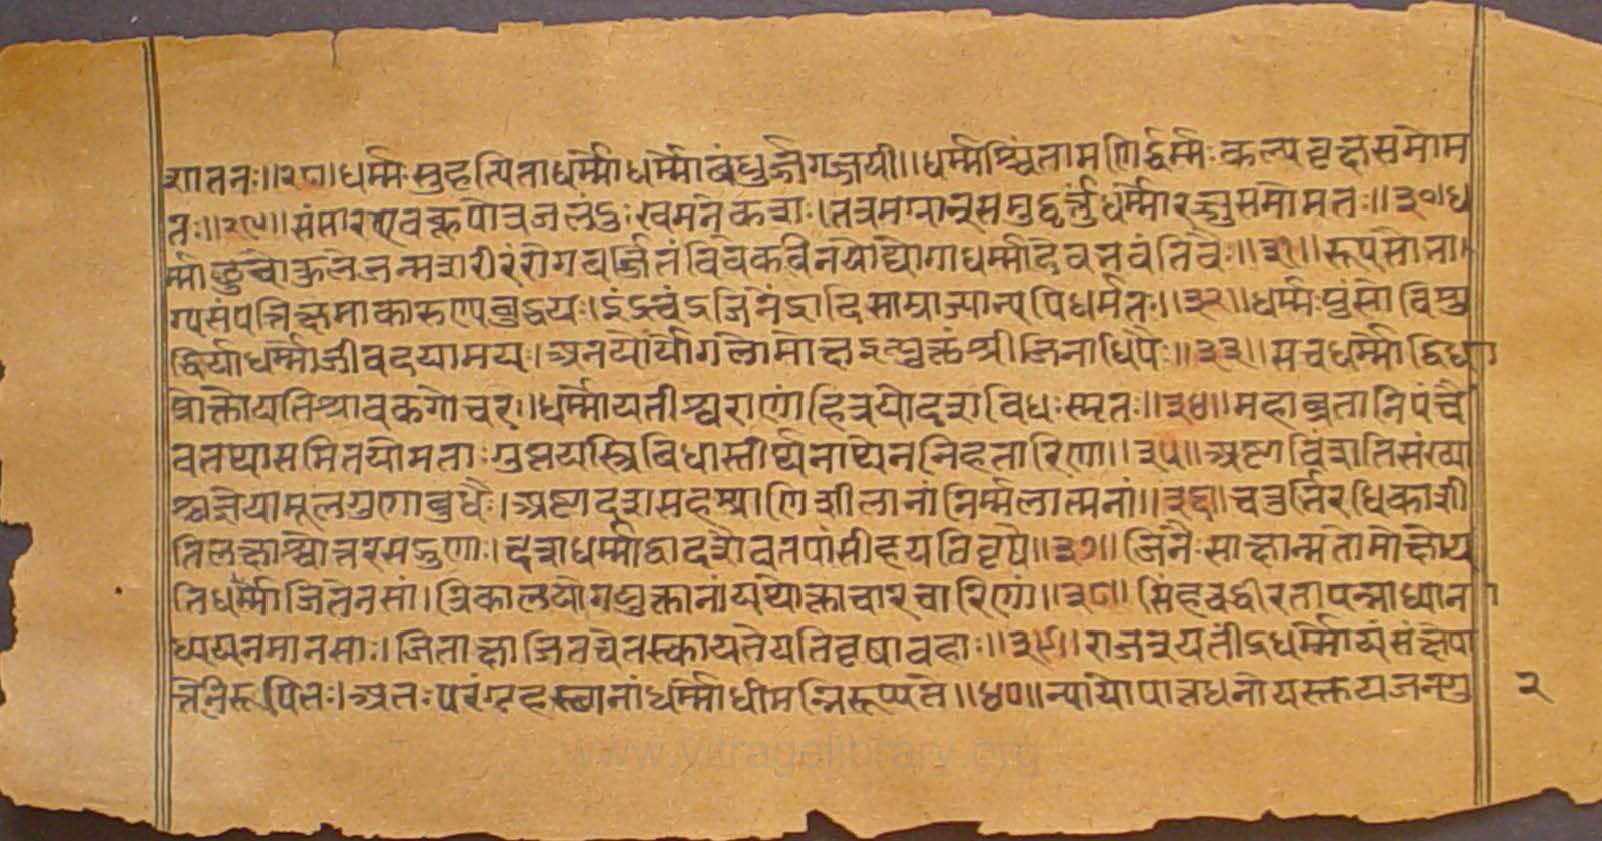 शातनः॥२८॥धर्म्मःसुहृत्पिताधर्म्मोधर्म्मोबंधुर्ज्जगज्जयी॥धर्म्मश्चिंतामणिर्द्धर्म्मःकल्पवृक्षसमोम
तः॥२९॥संसारएवकूपोत्रजलंदुःखमनेकशः।तत्रमग्नान्समुद्धर्त्तुंधर्म्मोरज्जुसमोमतः॥३०॥ध
र्म्माछुचौकुलेजन्मशरीरंरोगवर्ज्जितंविवेकविनयोद्योगाधर्म्मादेवनवंतिवै॥३१॥रूपसौभा
ग्यसंपत्तिक्षमाकारुण्यबुद्धयः।इंद्रत्वंऽजिनेंद्रादिसाम्राज्यान्यपिधर्मतः॥३२॥धर्म्मःपुंसोविशु
द्धिर्याधर्म्माजीवदयामयः।अनयोर्योगलोमोक्षइत्युक्तंश्रीजिनाधिपैः॥३३॥सचधर्म्मोद्विधा
प्रोक्तोयतिश्रावकगोचरः॥धर्म्मोयतीश्वराणांहित्रयोदशविधःस्मृतः॥३४॥महाव्रतानिपंचै
वतथासमितयोमताःगुप्तयस्त्रिविधास्तीर्थनाथेननिहतारिणा॥३५॥अष्टाविंशतिसंख्या
श्चज्ञेयामूलगुणाबुधैः।अष्टादशसहस्राणिशीलानांनिर्म्मलात्मनां॥३६॥चतुर्भिरधिकाशी
तिलक्षाश्चोत्तरसद्गुणाः।दशधर्म्माद्वादशैवतपांसीहयतिवृषे॥३७॥जिनैःसाक्षान्मतोमोक्षोय
तिधर्म्मोजितेनसां।त्रिकालयोगयुक्तानांयथोक्ताचारचारिणां॥३८॥सिंहवद्धीरतापन्नाध्याना
ध्ययनमानसाः।जिताक्षाजितचेतस्कायतेयतिवृषावहाः॥३९॥राजन्नयतींद्रधर्म्मोयंसंक्षेपा
न्निरूपितः।अतःपरंगृहस्थानांधर्म्मोधीमन्निरूप्यते॥४०॥न्यायोपात्तधनोयस्तुयजनगु
२
www.vitragalibrary.org